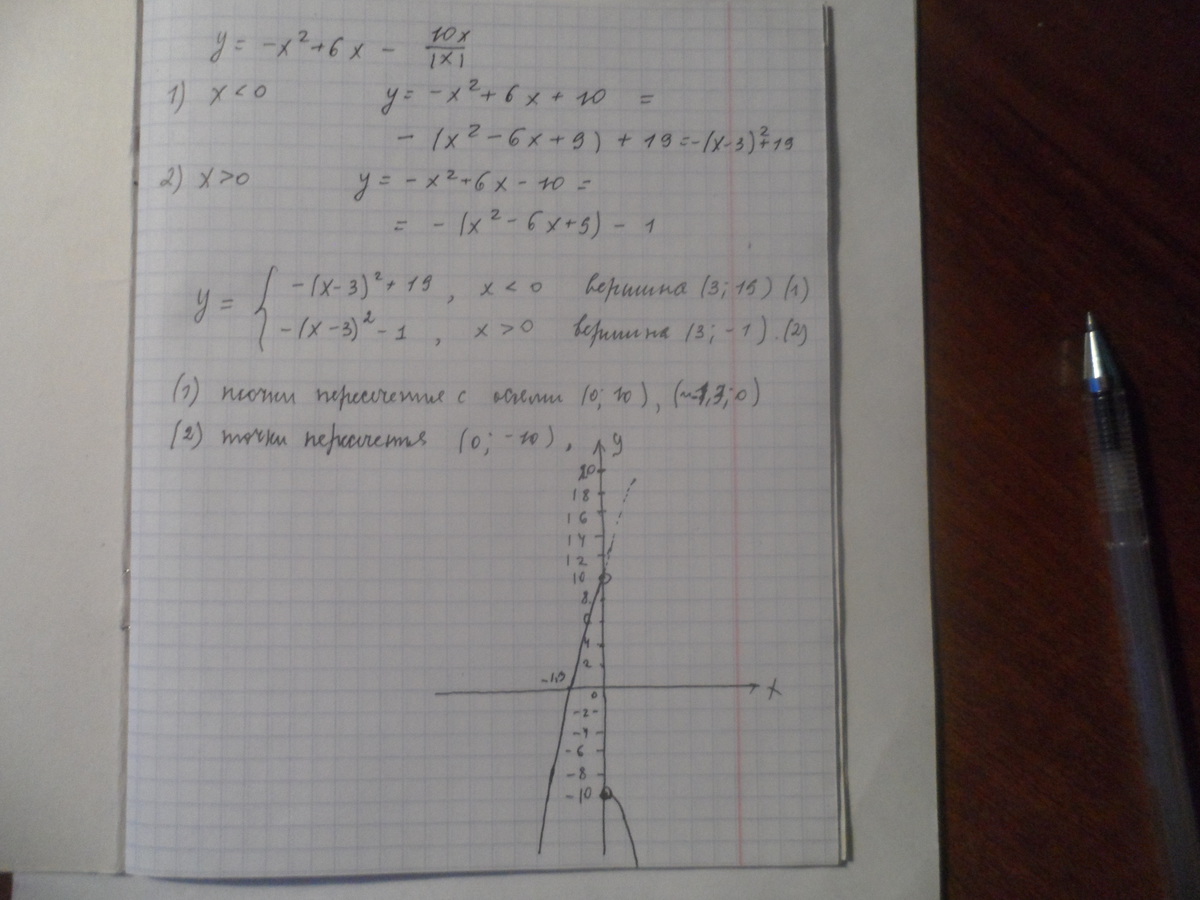 y = -x² + 6x - 10x/|x|
1) x < 0 y = -x² + 6x + 10 =
- (x² - 6x + 9) + 19 = -(x-3)² + 19
2) x > 0 y = -x² + 6x - 10 =
= - (x² - 6x + 9) - 1
y = { -(x-3)² + 19, x < 0 вершина (3; 19) (1)
-(x-3)² - 1, x > 0 вершина (3; -1). (2)
(1) точки пересечения с осями (0; 10), ( ; 0)
(2) точки пересечения (0; -10),
y
20
18
16
14
12
10
8
6
4
2
-1,3 0 x
-2
-4
-6
-8
-10